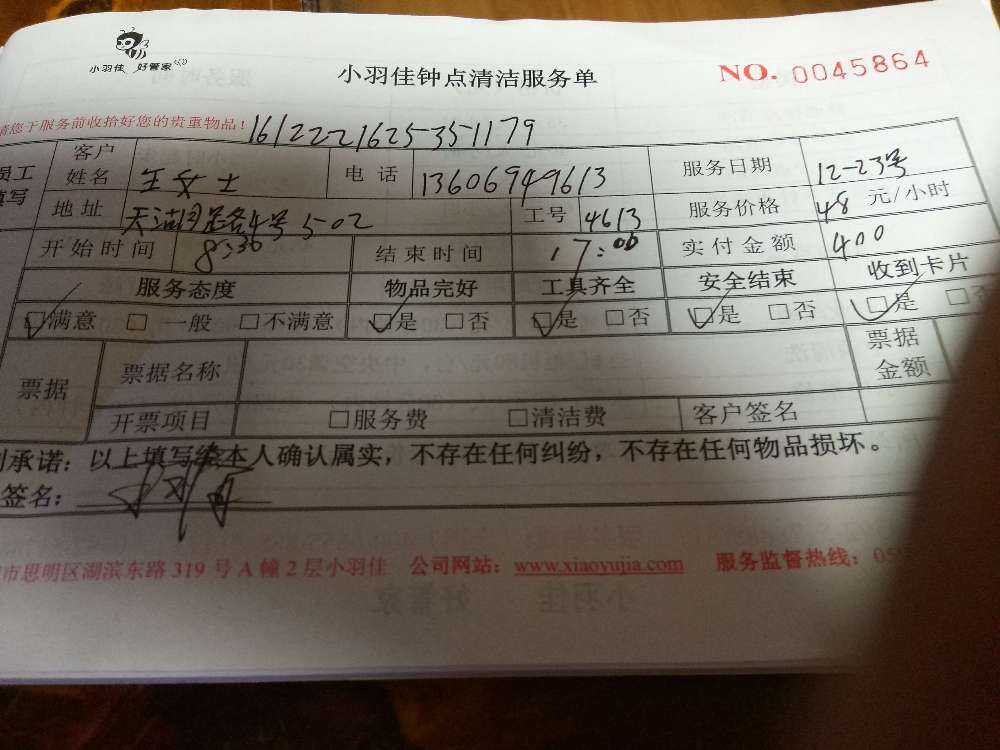 小羽佳 好管家
小羽佳钟点清洁服务单
NO. 0045864
请您于服务前收拾好您的贵重物品！ 161222162535 1179
员工填写 客户姓名 王女士 电话 13606949613 服务日期 12-23号
地址 4号502 工号 4613 服务价格 48 元/小时
开始时间 8:30 结束时间 17:00 实付金额 400
服务态度 物品完好 工具齐全 安全结束 收到卡片
☑满意 □一般 □不满意 ☑是 □否 ☑是 □否 ☑是 □否 ☑是 □否
票据 票据名称 票据金额
开票项目 □服务费 □清洁费 客户签名
承诺：以上填写经本人确认属实，不存在任何纠纷，不存在任何物品损坏。
签名：
市思明区湖滨东路 319 号 A 幢 2 层小羽佳 公司网站：www.xiaoyujia.com 服务监督热线：05